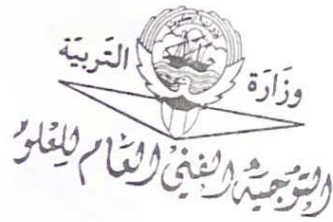 وزارة التربية
التوجيه الفني العام للعلوم